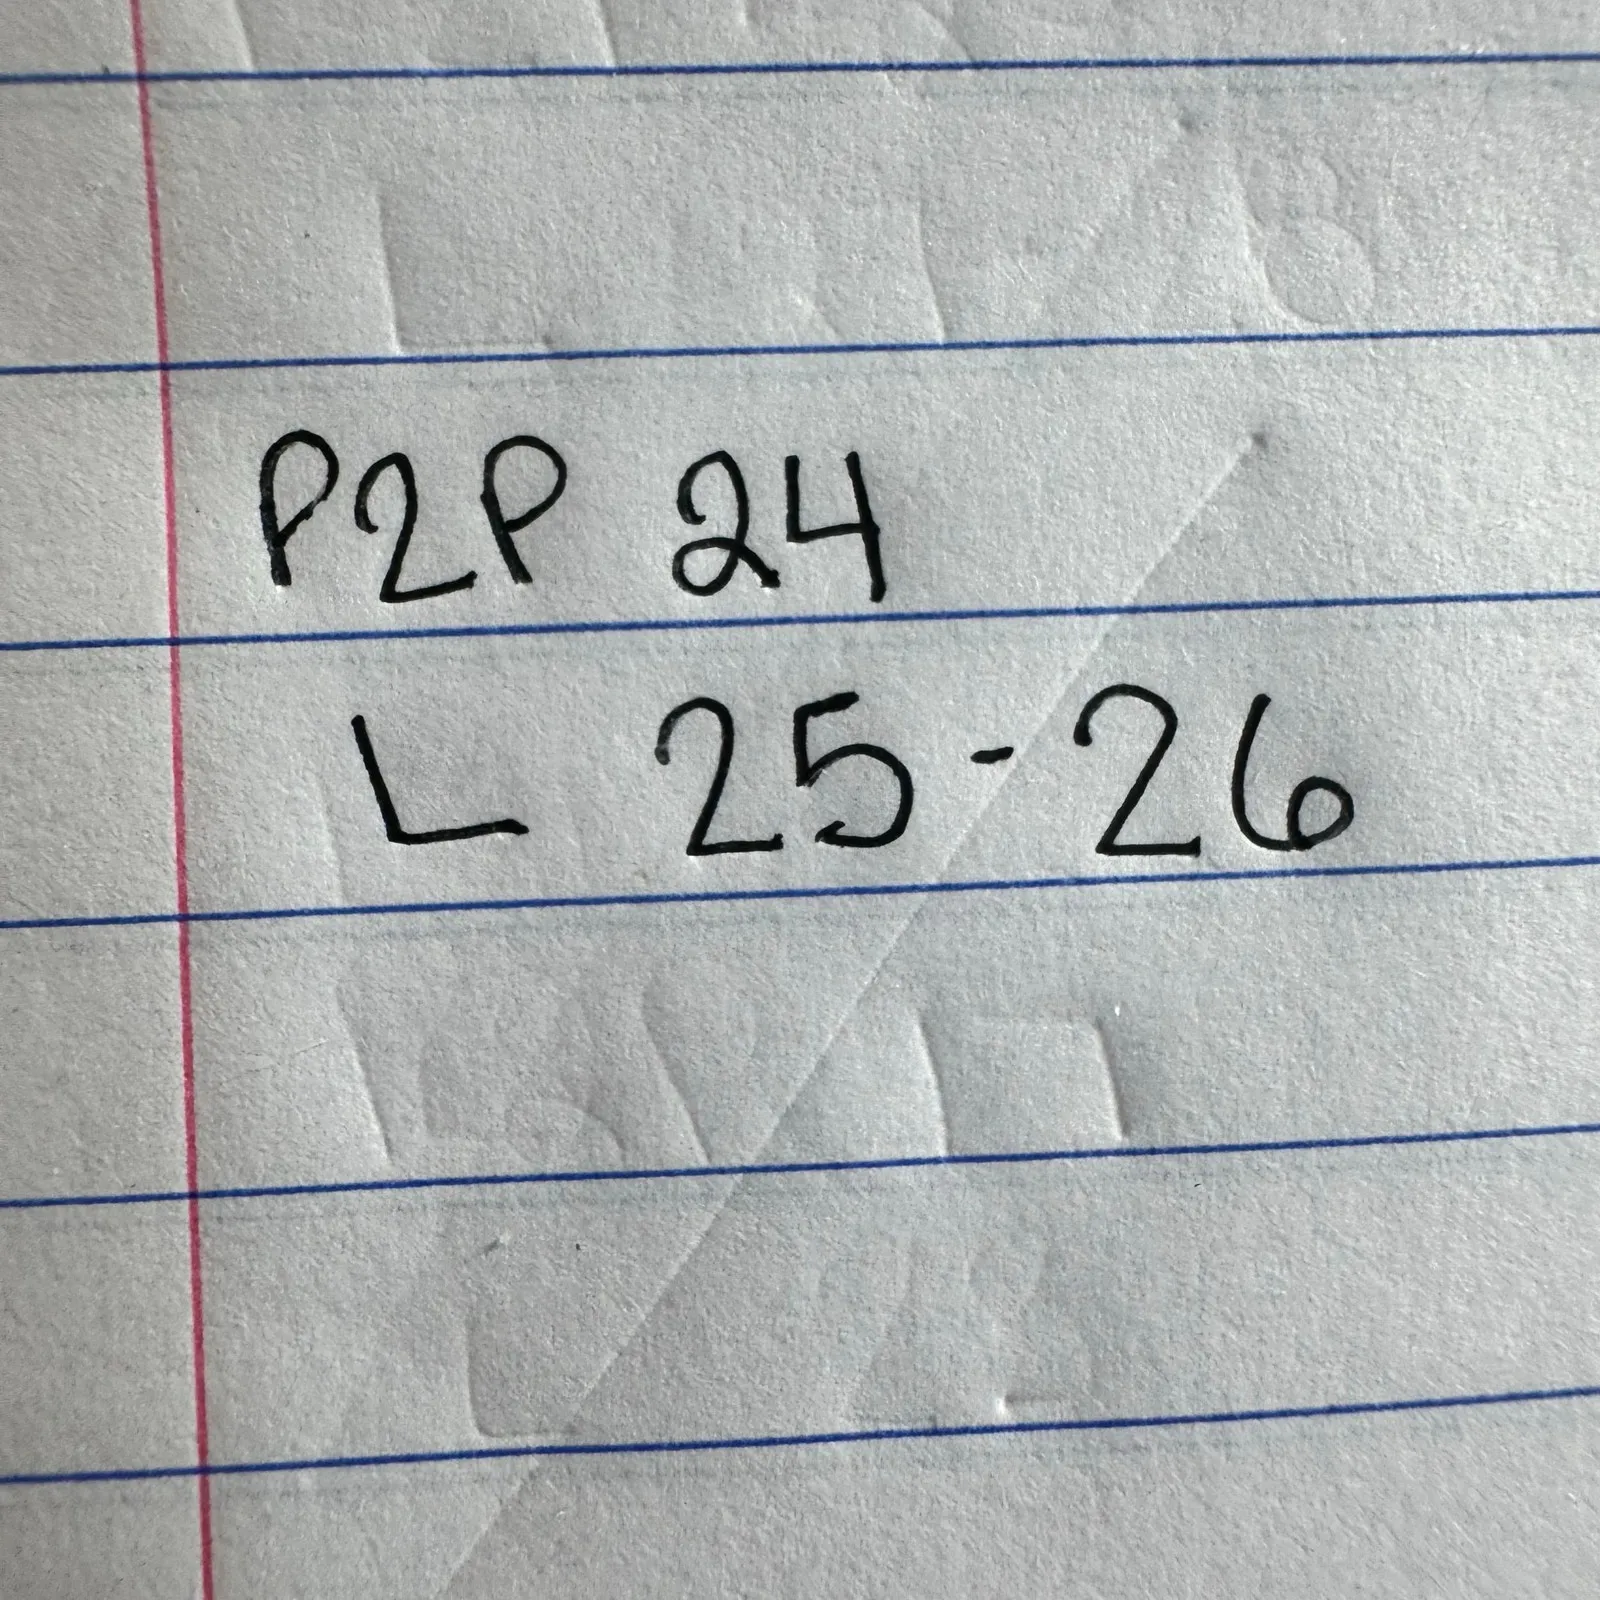 P2P 24
L 25-26